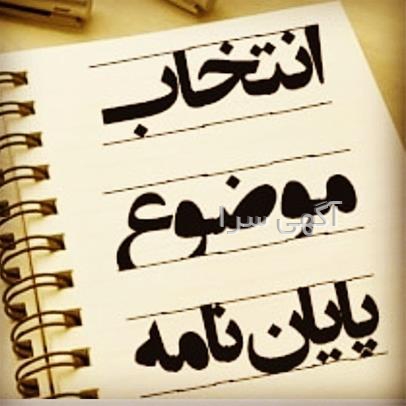 انتخاب
موضوع
آگهی سرا
پایان نامه